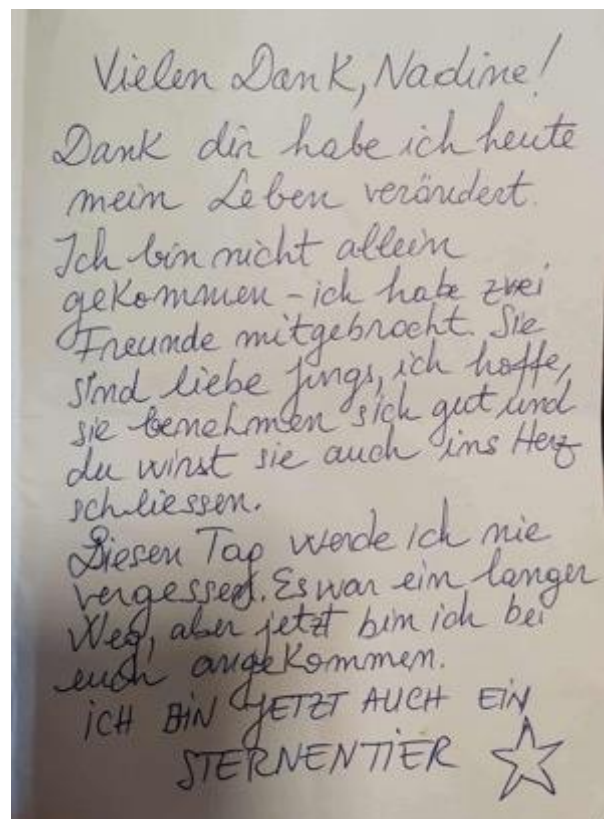 Vielen Dank, Nadine!
Dank dir habe ich heute
mein Leben verändert.
Ich bin nicht allein
gekommen - ich habe zwei
Freunde mitgebracht. Sie
sind liebe Jungs, ich hoffe,
sie benehmen sich gut und
du wirst sie auch ins Herz
schliessen.
Diesen Tag werde ich nie
vergessen. Es war ein langer
Weg, aber jetzt bin ich bei
euch angekommen.
ICH BIN JETZT AUCH EIN
STERNENTIER